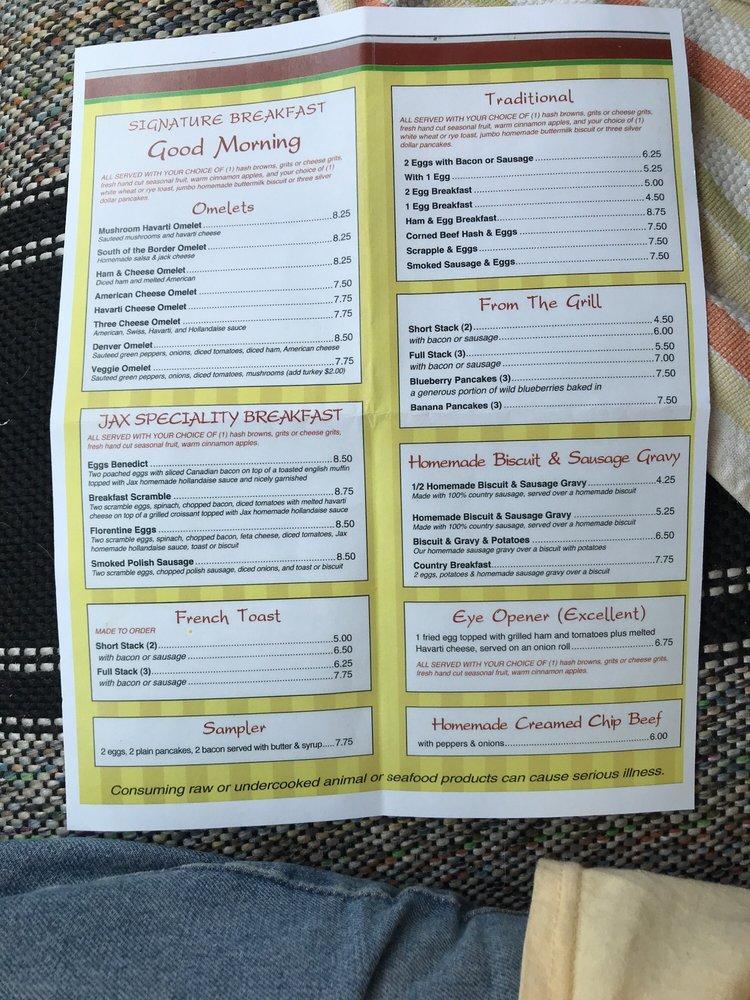 SIGNATURE BREAKFAST
Good Morning
ALL SERVED WITH YOUR CHOICE OF (1) hash browns, grits or cheese grits,
fresh hand cut seasonal fruit, warm cinnamon apples, and your choice of (1)
white wheat or rye toast, jumbo homemade buttermilk biscuit or three silver
dollar pancakes.
Omelets
Mushroom Havarti Omelet 8.25
Sauteed mushrooms and havarti cheese
South of the Border Omelet 8.25
Homemade salsa & jack cheese
Ham & Cheese Omelet 8.25
Diced ham and melted American
American Cheese Omelet 7.50
Havarti Cheese Omelet 7.75
Three Cheese Omelet 7.75
American, Swiss, Havarti, and Hollandaise sauce
Denver Omelet 8.50
Sauteed green peppers, onions, diced tomatoes, diced ham, American cheese
Veggie Omelet 7.75
Sauteed green peppers, onions, diced tomatoes, mushrooms (add turkey $2.00)
JAX SPECIALITY BREAKFAST
ALL SERVED WITH YOUR CHOICE OF (1) hash browns, grits or cheese grits,
fresh hand cut seasonal fruit, warm cinnamon apples.
Eggs Benedict 8.50
Two poached eggs with sliced Canadian bacon on top of a toasted english muffin
topped with Jax homemade hollandaise sauce and nicely garnished
Breakfast Scramble 8.75
Two scramble eggs, spinach, chopped bacon, diced tomatoes with melted havarti
cheese on top of a grilled croissant topped with Jax homemade hollandaise sauce
Florentine Eggs 8.50
Two scramble eggs, spinach, chopped bacon, feta cheese, diced tomatoes, Jax
homemade hollandaise sauce, toast or biscuit
Smoked Polish Sausage 8.50
Two scramble eggs, chopped polish sausage, diced onions, and toast or biscuit
French Toast
MADE TO ORDER
Short Stack (2) 5.00
with bacon or sausage 6.50
Full Stack (3) 6.25
with bacon or sausage 7.75
Sampler
2 eggs, 2 plain pancakes, 2 bacon served with butter & syrup 7.75
Traditional
ALL SERVED WITH YOUR CHOICE OF (1) hash browns, grits or cheese grits,
fresh hand cut seasonal fruit, warm cinnamon apples, and your choice of (1)
white wheat or rye toast, jumbo homemade buttermilk biscuit or three silver
dollar pancakes.
2 Eggs with Bacon or Sausage 6.25
With 1 Egg 5.25
2 Egg Breakfast 5.00
1 Egg Breakfast 4.50
Ham & Egg Breakfast 8.75
Corned Beef Hash & Eggs 7.50
Scrapple & Eggs 7.50
Smoked Sausage & Eggs 7.50
From The Grill
Short Stack (2) 4.50
with bacon or sausage 6.00
Full Stack (3) 5.50
with bacon or sausage 7.00
Blueberry Pancakes (3) 7.50
a generous portion of wild blueberries baked in
Banana Pancakes (3) 7.50
Homemade Biscuit & Sausage Gravy
1/2 Homemade Biscuit & Sausage Gravy 4.25
Made with 100% country sausage, served over a homemade biscuit
Homemade Biscuit & Sausage Gravy 5.25
Made with 100% country sausage, served over a homemade biscuit
Biscuit & Gravy & Potatoes 6.50
Our homemade sausage gravy over a biscuit with potatoes
Country Breakfast 7.75
2 eggs, potatoes & homemade sausage gravy over a biscuit
Eye Opener (Excellent)
1 fried egg topped with grilled ham and tomatoes plus melted
Havarti cheese, served on an onion roll 6.75
ALL SERVED WITH YOUR CHOICE OF (1) hash browns, grits or cheese grits,
fresh hand cut seasonal fruit, warm cinnamon apples.
Homemade Creamed Chip Beef
with peppers & onions 6.00
Consuming raw or undercooked animal or seafood products can cause serious illness.